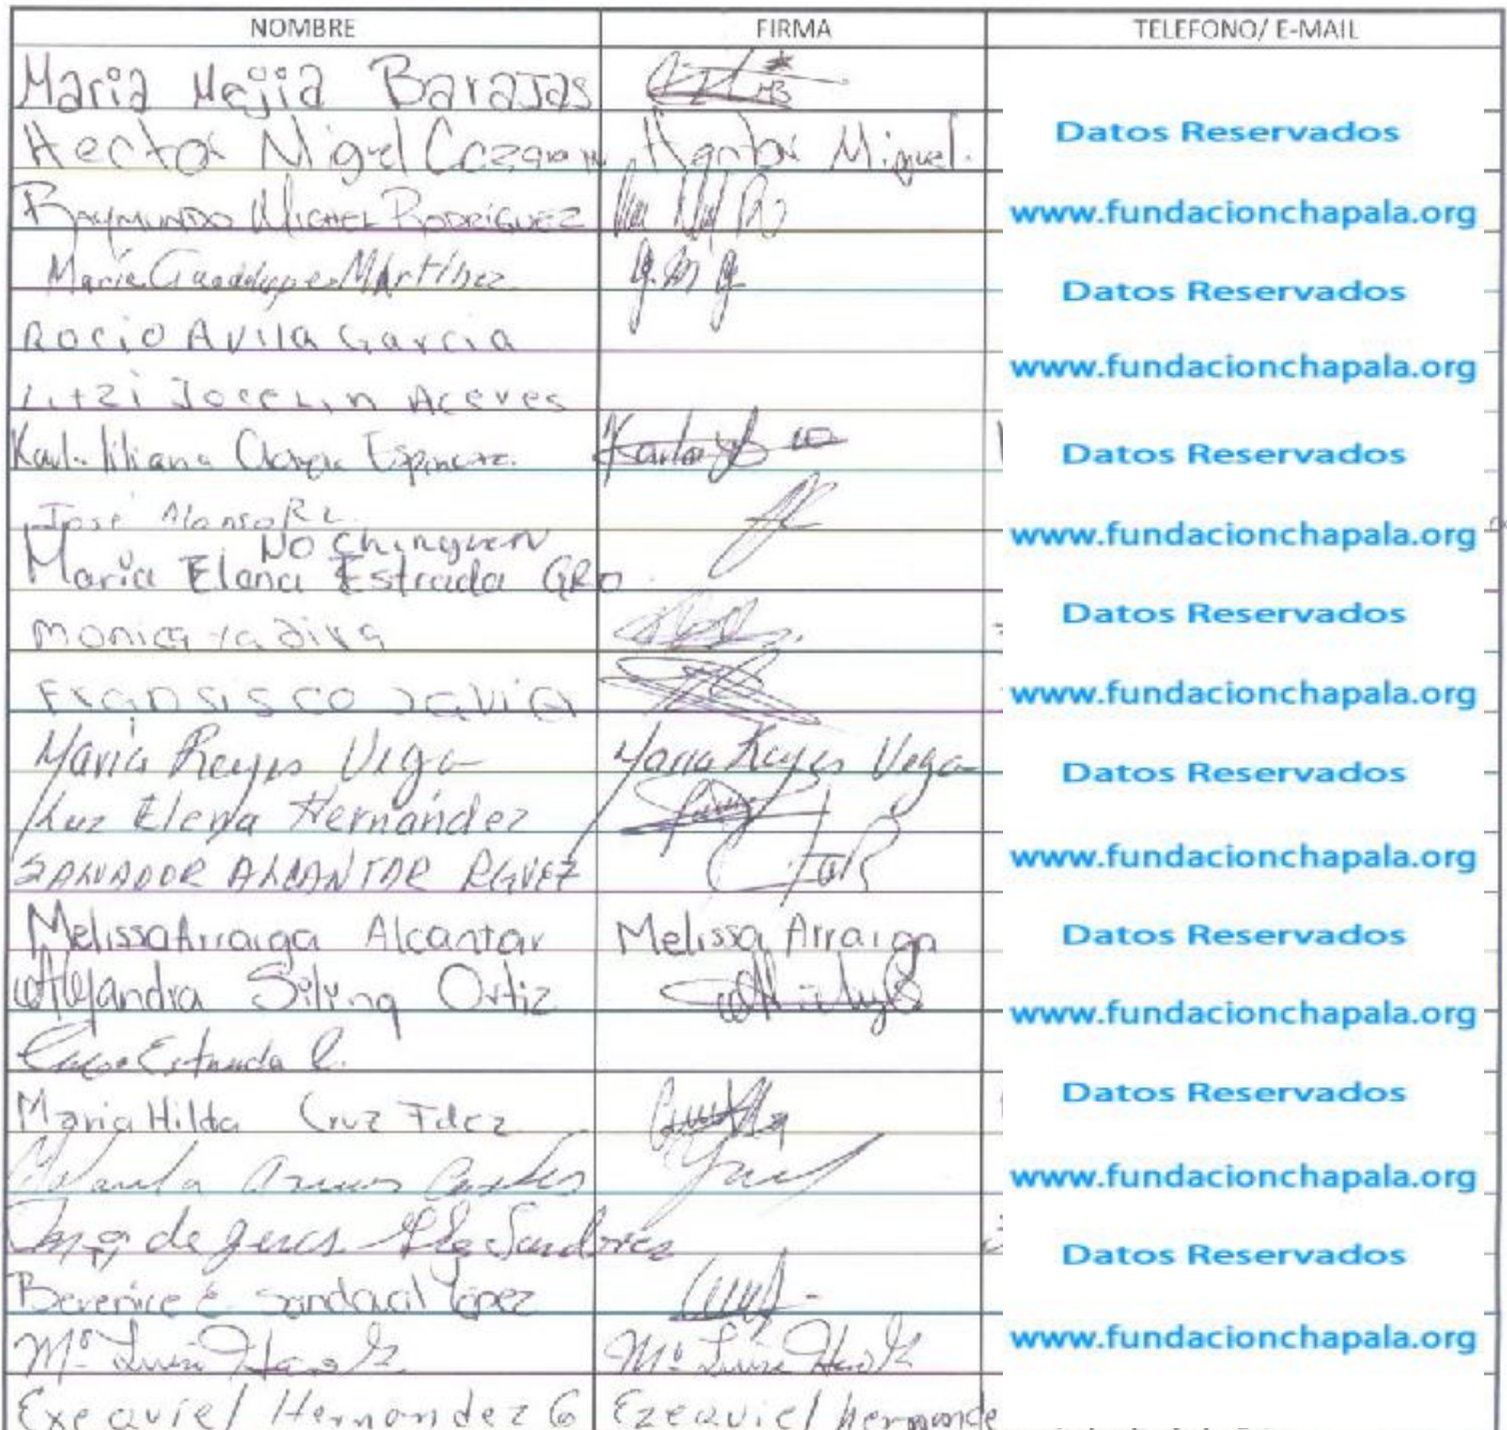 NOMBRE FIRMA TELEFONO/ E-MAIL
Maria Mejia Barajas
Hector Migel Hector Miguel.
Datos Reservados
RAYMUNDO MICHEL RODRIGUEZ
www.fundacionchapala.org
Maria Guadalupe Martinez
Datos Reservados
Rocio Avila Garcia
www.fundacionchapala.org
Litzi Jocelin Aceves
Karla liliana Espinoza Karla
Datos Reservados
José Alonso R L
www.fundacionchapala.org
No chinguen
Maria Elena Estrada GRO.
Datos Reservados
monica yadira
www.fundacionchapala.org
Fransisco Javier
Maria Reyes Vega Maria Reyes Vega
Datos Reservados
Luz Elena Hernández
www.fundacionchapala.org
SALVADOR ALCANTAR RGVEZ
Melissa Arraiga Alcantar Melissa Arraiga
Datos Reservados
Alejandra Ortiz
www.fundacionchapala.org
Estrada C.
Maria Hilda Cruz Fdez
Datos Reservados
www.fundacionchapala.org
de jesus
Datos Reservados
Berenice E. Sandoval Lopez
www.fundacionchapala.org
Mª Luisa Mª Luisa
Exequiel Hernandez G Ezequiel hernande